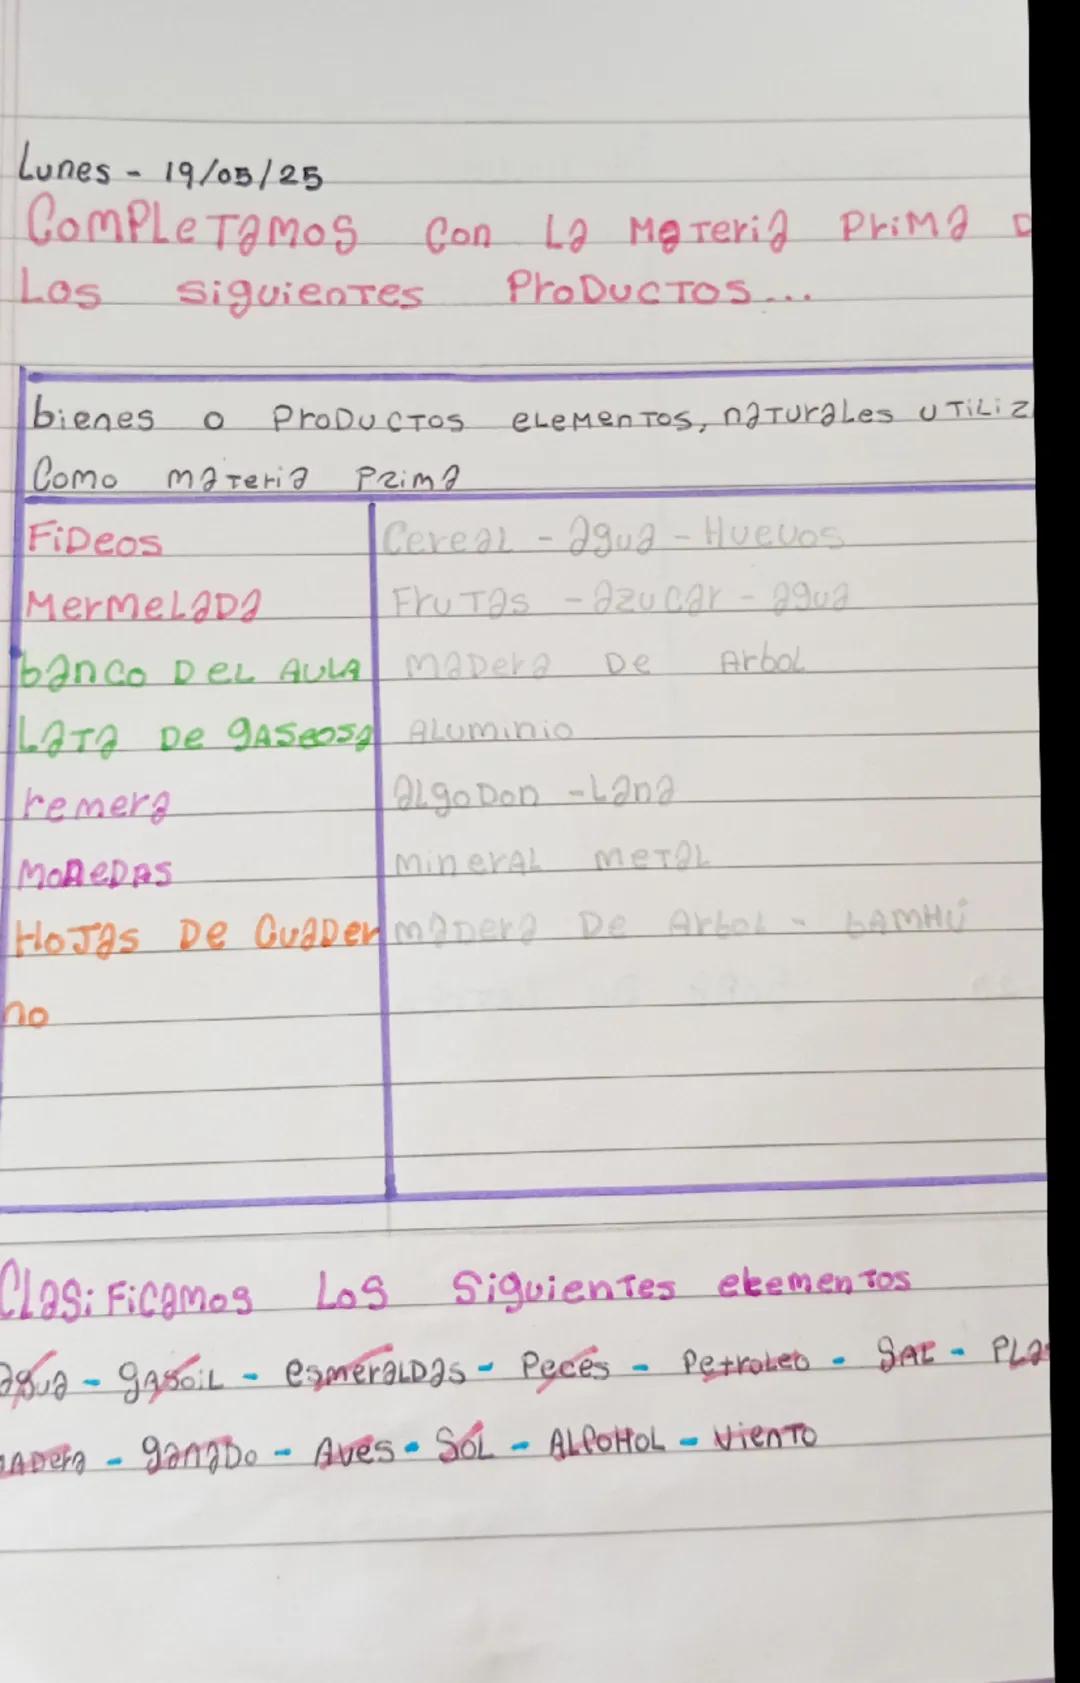 Lunes - 19/05/25
Completamos con la materia prima D
Los siguientes Productos...
bienes o Productos elementos, naturales utiliz
Como materia Prima
Fideos Cereal - agua - Huevos
Mermelada Frutas - azucar - agua
banco Del AULA madera De Arbol
Lata De gaseosa Aluminio
remera algodon - Lana
Monedas mineral metal
Hojas De Cuader madera De Arbol - bAMHÚ
no
Clasificamos Los Siguientes elementos
agua - gasoil - esmeraldas - Peces - Petroleo - gas - Pla
adera - ganado - Aves - Sol - ALCOHOL - Viento